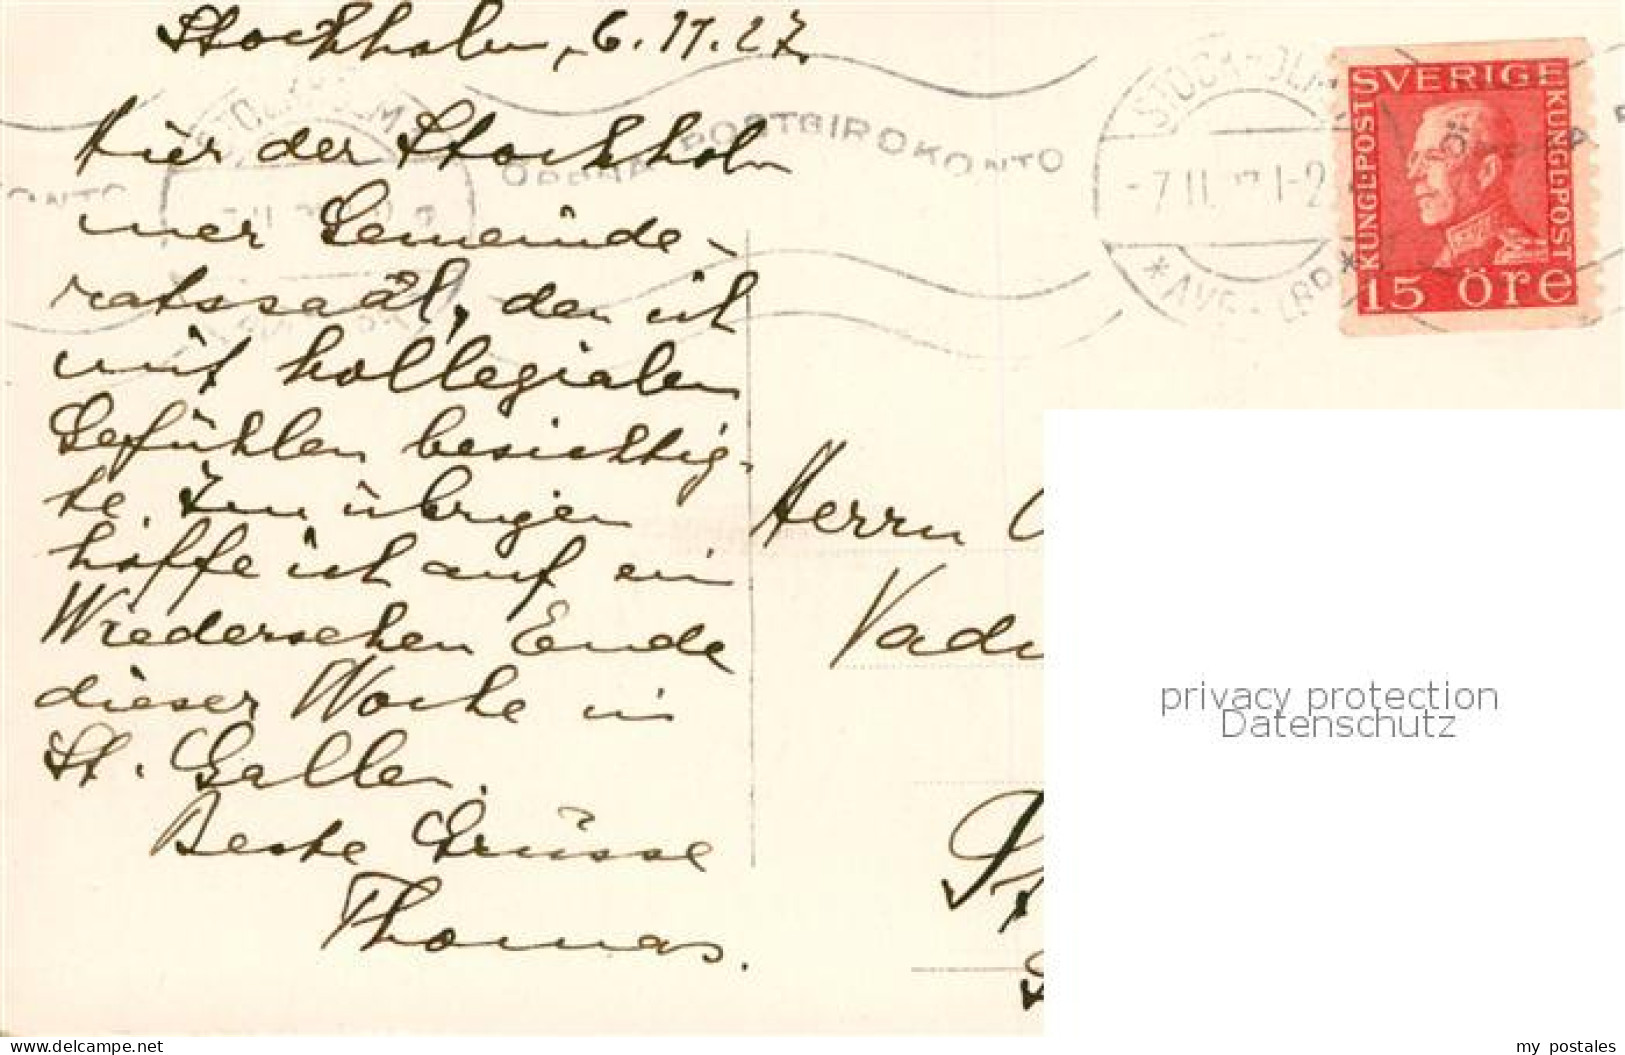 Stockholm, 6.11.27.
Hier der Stockhol
mer Gemeinde-
ratssaal, den ich
mit kollegialen
Gefühlen besichtig-
te. Im übrigen
hoffe ich auf ein
Wiedersehen Ende
dieser Woche in
St. Gallen.
Beste Grüsse
Thomas.
POSTGIROKONTO
STOCKHOLM
-7.11.27 1-2
SVERIGE
KUNGL·POST
KUNGL·POST
15 öre
Herrn
Vadi
St
privacy protection
Datenschutz
www.delcampe.net
my_postales